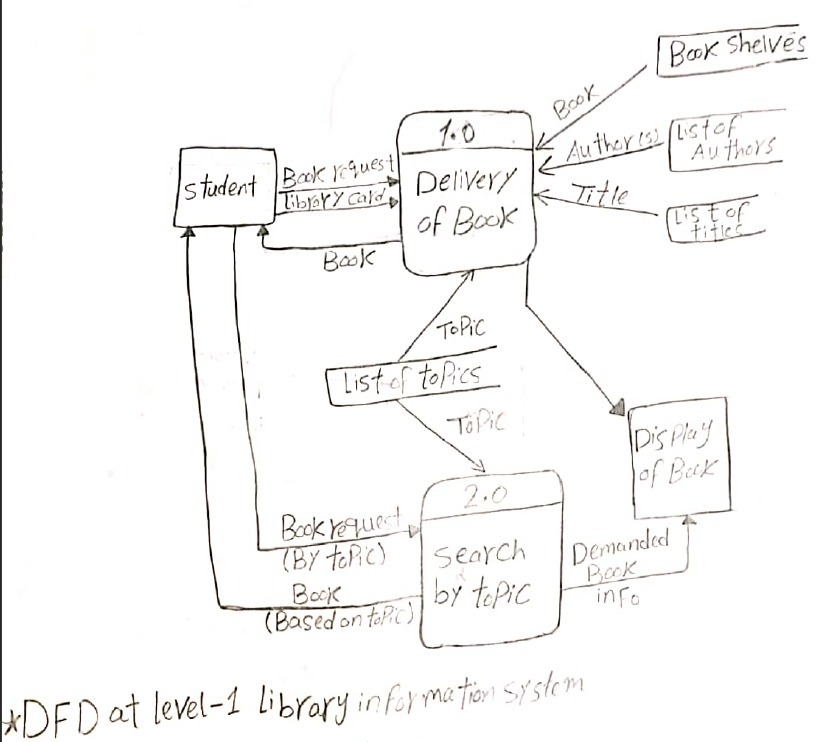 Book Shelves
Book
1.0
Author(s)
List of
Authors
Student
Book request
Library card
Delivery
of Book
Title
List of
titles
Book
Topic
List of topics
Topic
Display
of Book
2.0
Book request
(By topic)
Search
by topic
Demanded
Book
info
Book
(Based on topic)
*DFD at level-1 library information system